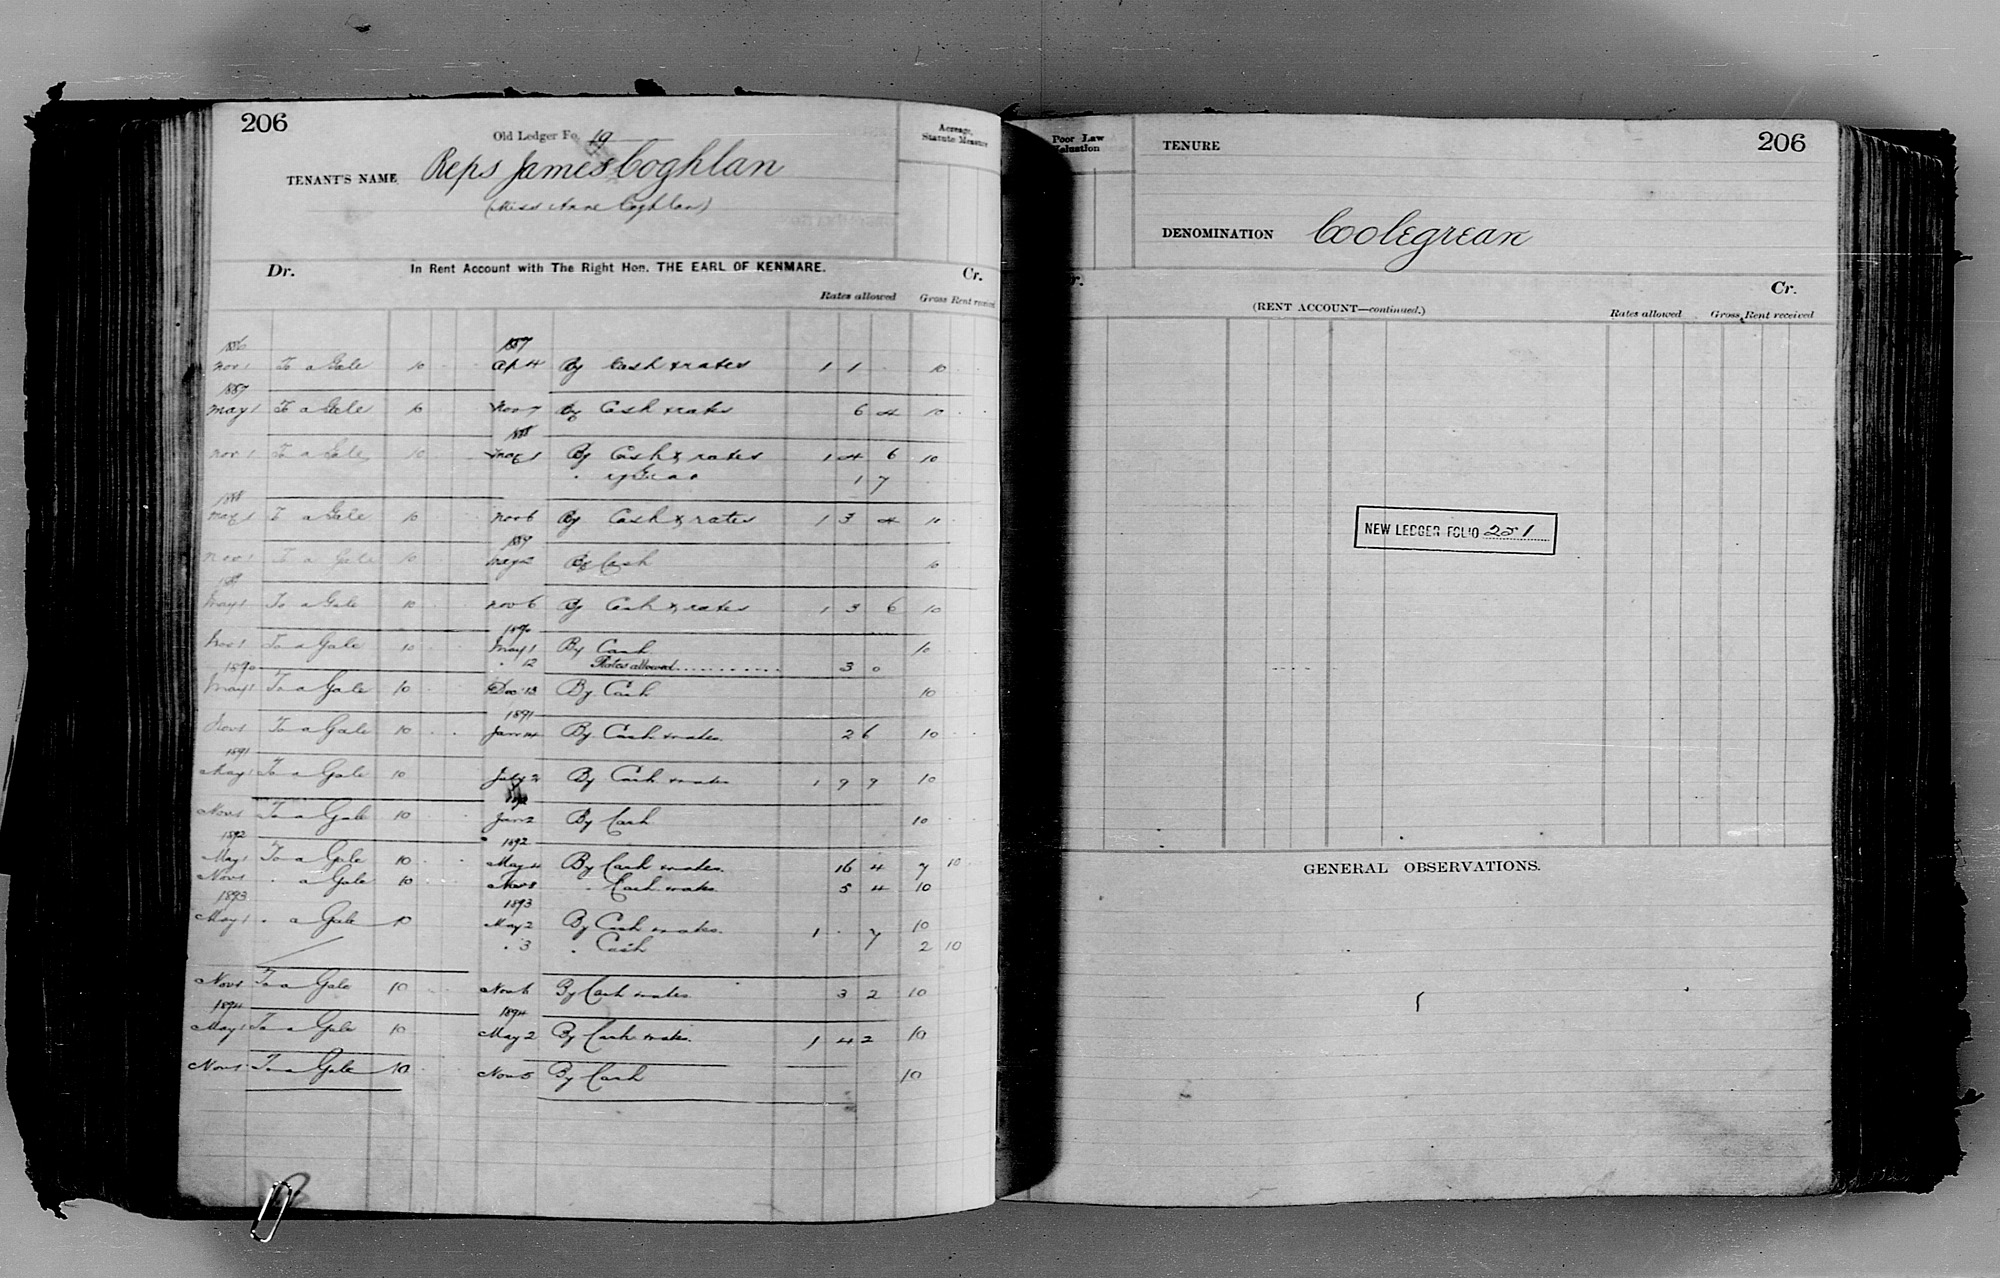 206
Old Ledger Fo. 19
Acreage, Statute Measure
TENANT'S NAME Reps James Coghlan
(Miss Anne Coghlan)
Dr. In Rent Account with The Right Hon. THE EARL OF KENMARE. Cr.
Rates allowed Gross Rent received
1886 1887
Nov 1 To a Gale 10 Ap 4 By Cash & rates 1 1 10
1887
May 1 To a Gale 10 Nov 7 By Cash & rates 6 4 10
1888
Nov 1 To a Gale 10 May 1 By Cash & rates 1 4 6 10
1 7
1888
May 1 To a Gale 10 Nov 6 By Cash & rates 1 3 4 10
1889
Nov 1 To a Gale 10 May 2 By Cash 10
1889
May 1 To a Gale 10 Nov 6 By Cash & rates 1 3 6 10
1890
Nov 1 To a Gale 10 May 1 By Cash 10
1890 " 12 Rates allowed 3 0
May 1 To a Gale 10 Dec 13 By Cash 10
1891
Nov 1 To a Gale 10 Jan 14 By Cash & rates 2 6 10
1891
May 1 To a Gale 10 July 2 By Cash & rates 1 9 9 10
1892
Nov 1 To a Gale 10 Jan 2 By Cash 10
1892 1892
May 1 To a Gale 10 May 4 By Cash & rates 16 4 7 10
Nov 1 " a Gale 10 Nov 8 " Cash & rates 5 4 10
1893 1893
May 1 " a Gale 10 May 2 By Cash & rates 1 . 7 10
" 3 " Cash 2 10
Nov 1 To a Gale 10 Nov 6 By Cash & rates 3 2 10
1894 1894
May 1 To a Gale 10 May 2 By Cash & rates 1 4 2 10
Nov 1 To a Gale 10 Nov 5 By Cash 10
Poor Law Valuation
TENURE 206
DENOMINATION Coolegrean
Cr.
(RENT ACCOUNT—continued.) Rates allowed Gross Rent received
NEW LEDGER FOLIO 251
GENERAL OBSERVATIONS.